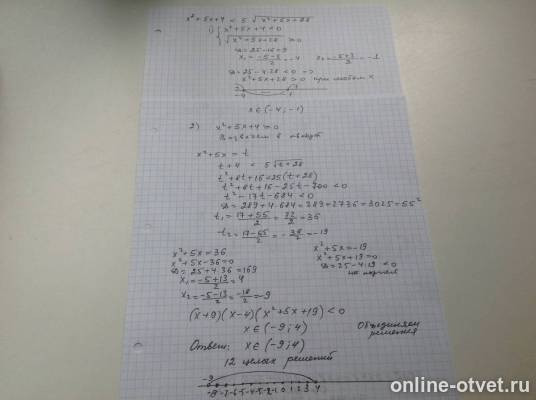 x²+5x+4 < 5√(x²+5x+28)
1) { x²+5x+4<0
√(x²+5x+28) ≥0
D=25-16=9
x₁ = (-5-3)/2 = -4 x₂ = (-5+3)/2 = -1
D=25-4·28<0 =>
x²+5x+28>0 при любом x
-4 -1
x∈(-4;-1)
2) x²+5x+4≥0
Возведем в квадрат
x²+5x=t
t+4 < 5√(t+28)
t²+8t+16<25(t+28)
t²+8t+16-25t-700<0
t²-17t-684<0
D=289+4·684=289+2736=3025=55²
t₁ = (17+55)/2 = 72/2 = 36
t₂ = (17-55)/2 = -38/2 = -19
x²+5x=36 x²+5x=-19
x²+5x-36=0 x²+5x+19=0
D=25+4·36=169 D=25-4·19<0
x₁ = (-5+13)/2 = 4
x₂ = (-5-13)/2 = -18/2 = -9
(x+9)(x-4)(x²+5x+19)<0
x∈(-9;4) Объединяем
решения
Ответ: x∈(-9;4)
12 целых решений
-9 -8 -7 -6 -5 -4 -3 -2 -1 0 1 2 3 4
online-otvet.ru